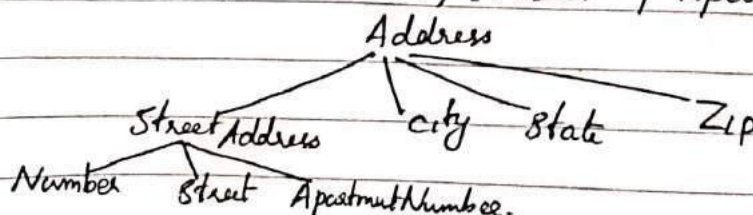 Address
Street Address City State Zip
Number Street Apartment Number.